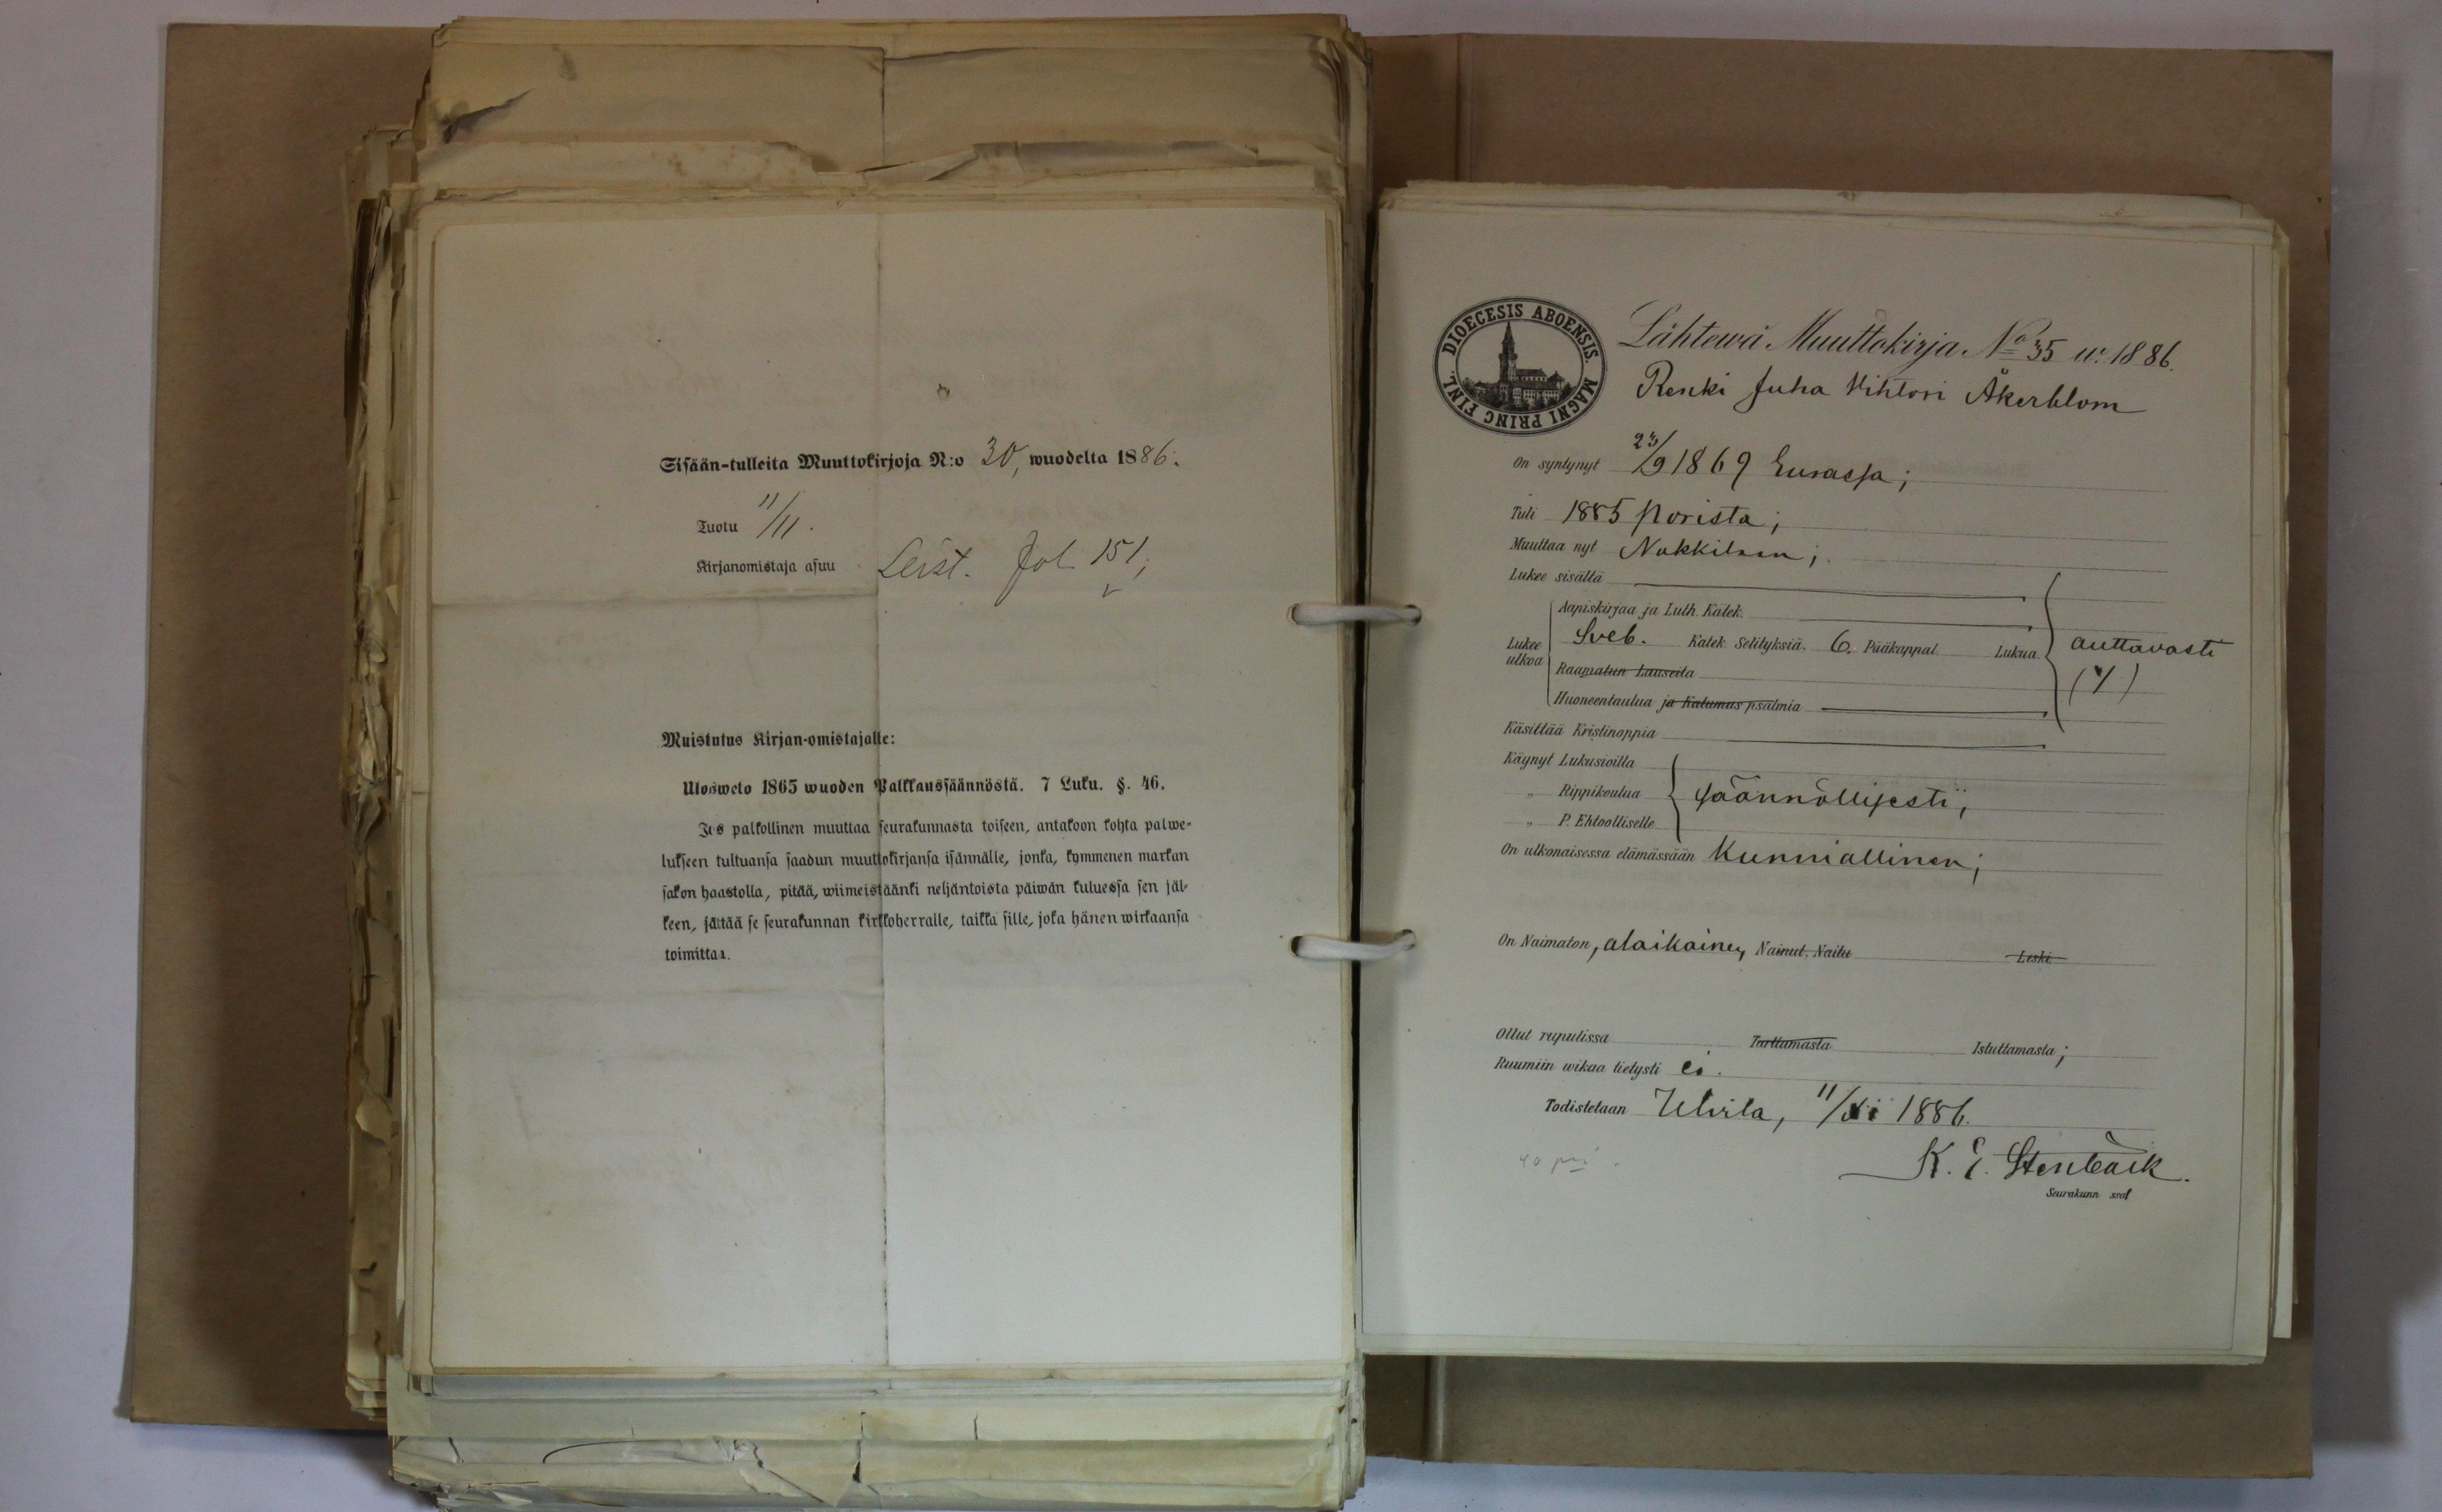 Sisään-tulleita Muuttokirjoja N:o 30, wuodelta 1886.
Tuotu 11/11.
Kirjanomistaja asuu Leist. Fol. 151;
Muistutus Kirjan-omistajalle:
Ulosweto 1865 wuoden Palkkaussäännöstä. 7 Luku. §. 46.
Jos palkollinen muuttaa seurakunnasta toiseen, antakoon kohta palwe-
lukseen tultuansa saadun muuttokirjansa isännälle, jonka, kymmenen markan
sakon haastolla, pitää, wiimeistäänki neljäntoista päiwän kuluessa sen jäl-
keen, jättää se seurakunnan kirkkoherralle, taikka sille, joka hänen wirkaansa
toimittaa.
DIOECESIS ABOENSIS. MAGNI PRINC FINL.
Lähtewä Muuttokirja No 35 w. 1886.
Renki Juha Vihtori Åkerblom
On syntynyt 23/9 1869 Eurassa;
Tuli 1885 Porista;
Muuttaa nyt Nakkilaan;
Lukee sisältä
Aapiskirjaa ja Luth. Katek.
Lukee ulkoa Sveb. Katek. Selityksiä. 6. Pääkappal. Lukua. auttavasti
Raamatun Lauseita
Huoneentaulua ja Katumus psalmia
Käsittää Kristinoppia
Käynyt Lukusioilla
„ Rippikoulua säännöllisesti;
„ P. Ehtoolliselle
On ulkonaisessa elämässään Kunniallinen;
On Naimaton, alaikäinen, Nainut. Naitu Leski
Ollut rupulissa Tarttamasta Istuttamasta;
Ruumiin wikaa tietysti ei.
Todistetaan Ulvila, 11/xi 1886.
40 pni.
K. E. Stenbäck.
Seurakunn ssa